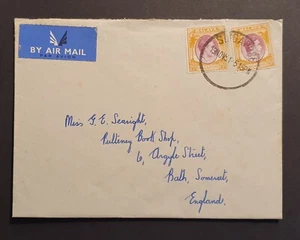 BY AIR MAIL
PAR AVION
Miss G. E. Searight,
Pulteney Book Shop,
6, Argyle Street,
Bath, Somerset,
England.